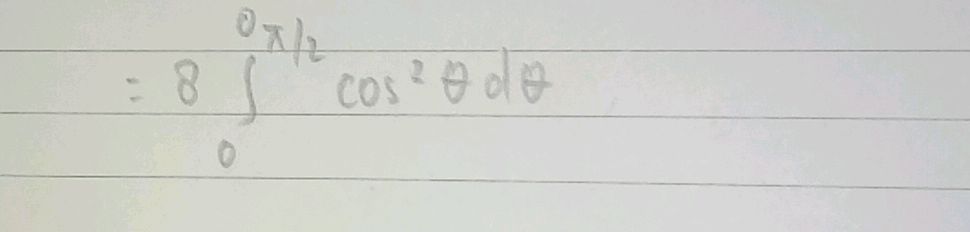 = 8 ∫₀^{π/2} cos² θ dθ